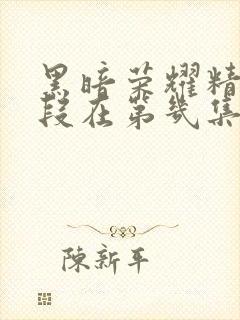 黑暗荣耀精
段在第几集
陳新平